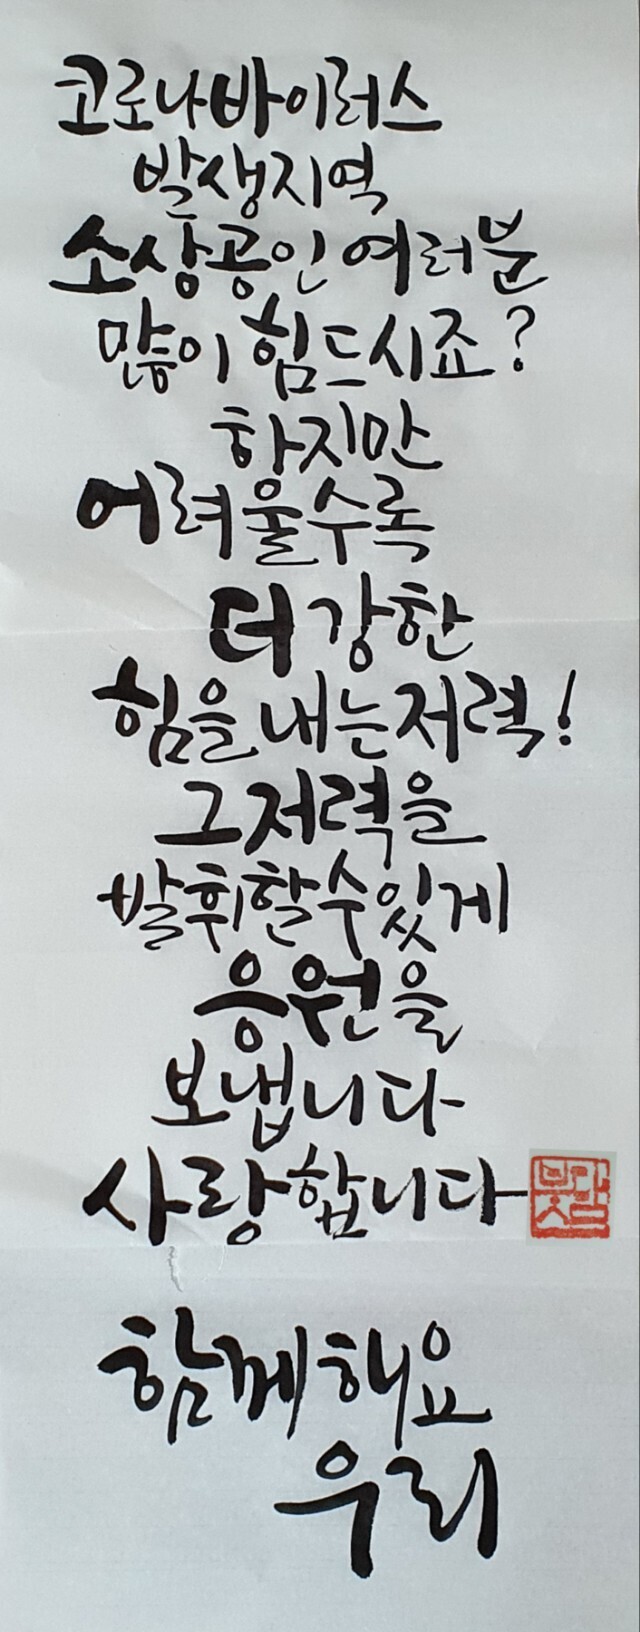 코로나바이러스
발생지역
소상공인 여러분
많이 힘드시죠?
하지만
어려울수록
더 강한
힘을 내는 저력!
그 저력을
발휘할 수 있게
응원을
보냅니다
사랑합니다
함께해요
우리